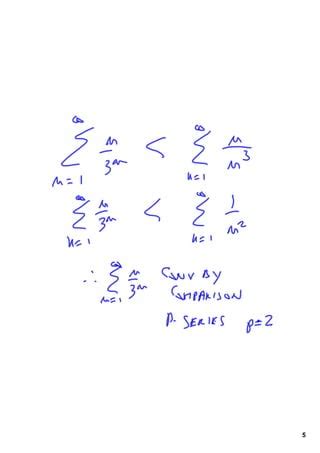 ∞ ∑ n=1 n/3ⁿ < ∞ ∑ n=1 n/n³
∞ ∑ n=1 n/3ⁿ < ∞ ∑ n=1 1/n²
∴ ∞ ∑ n=1 n/3ⁿ CONV BY
COMPARISON
P. SERIES p=2
5